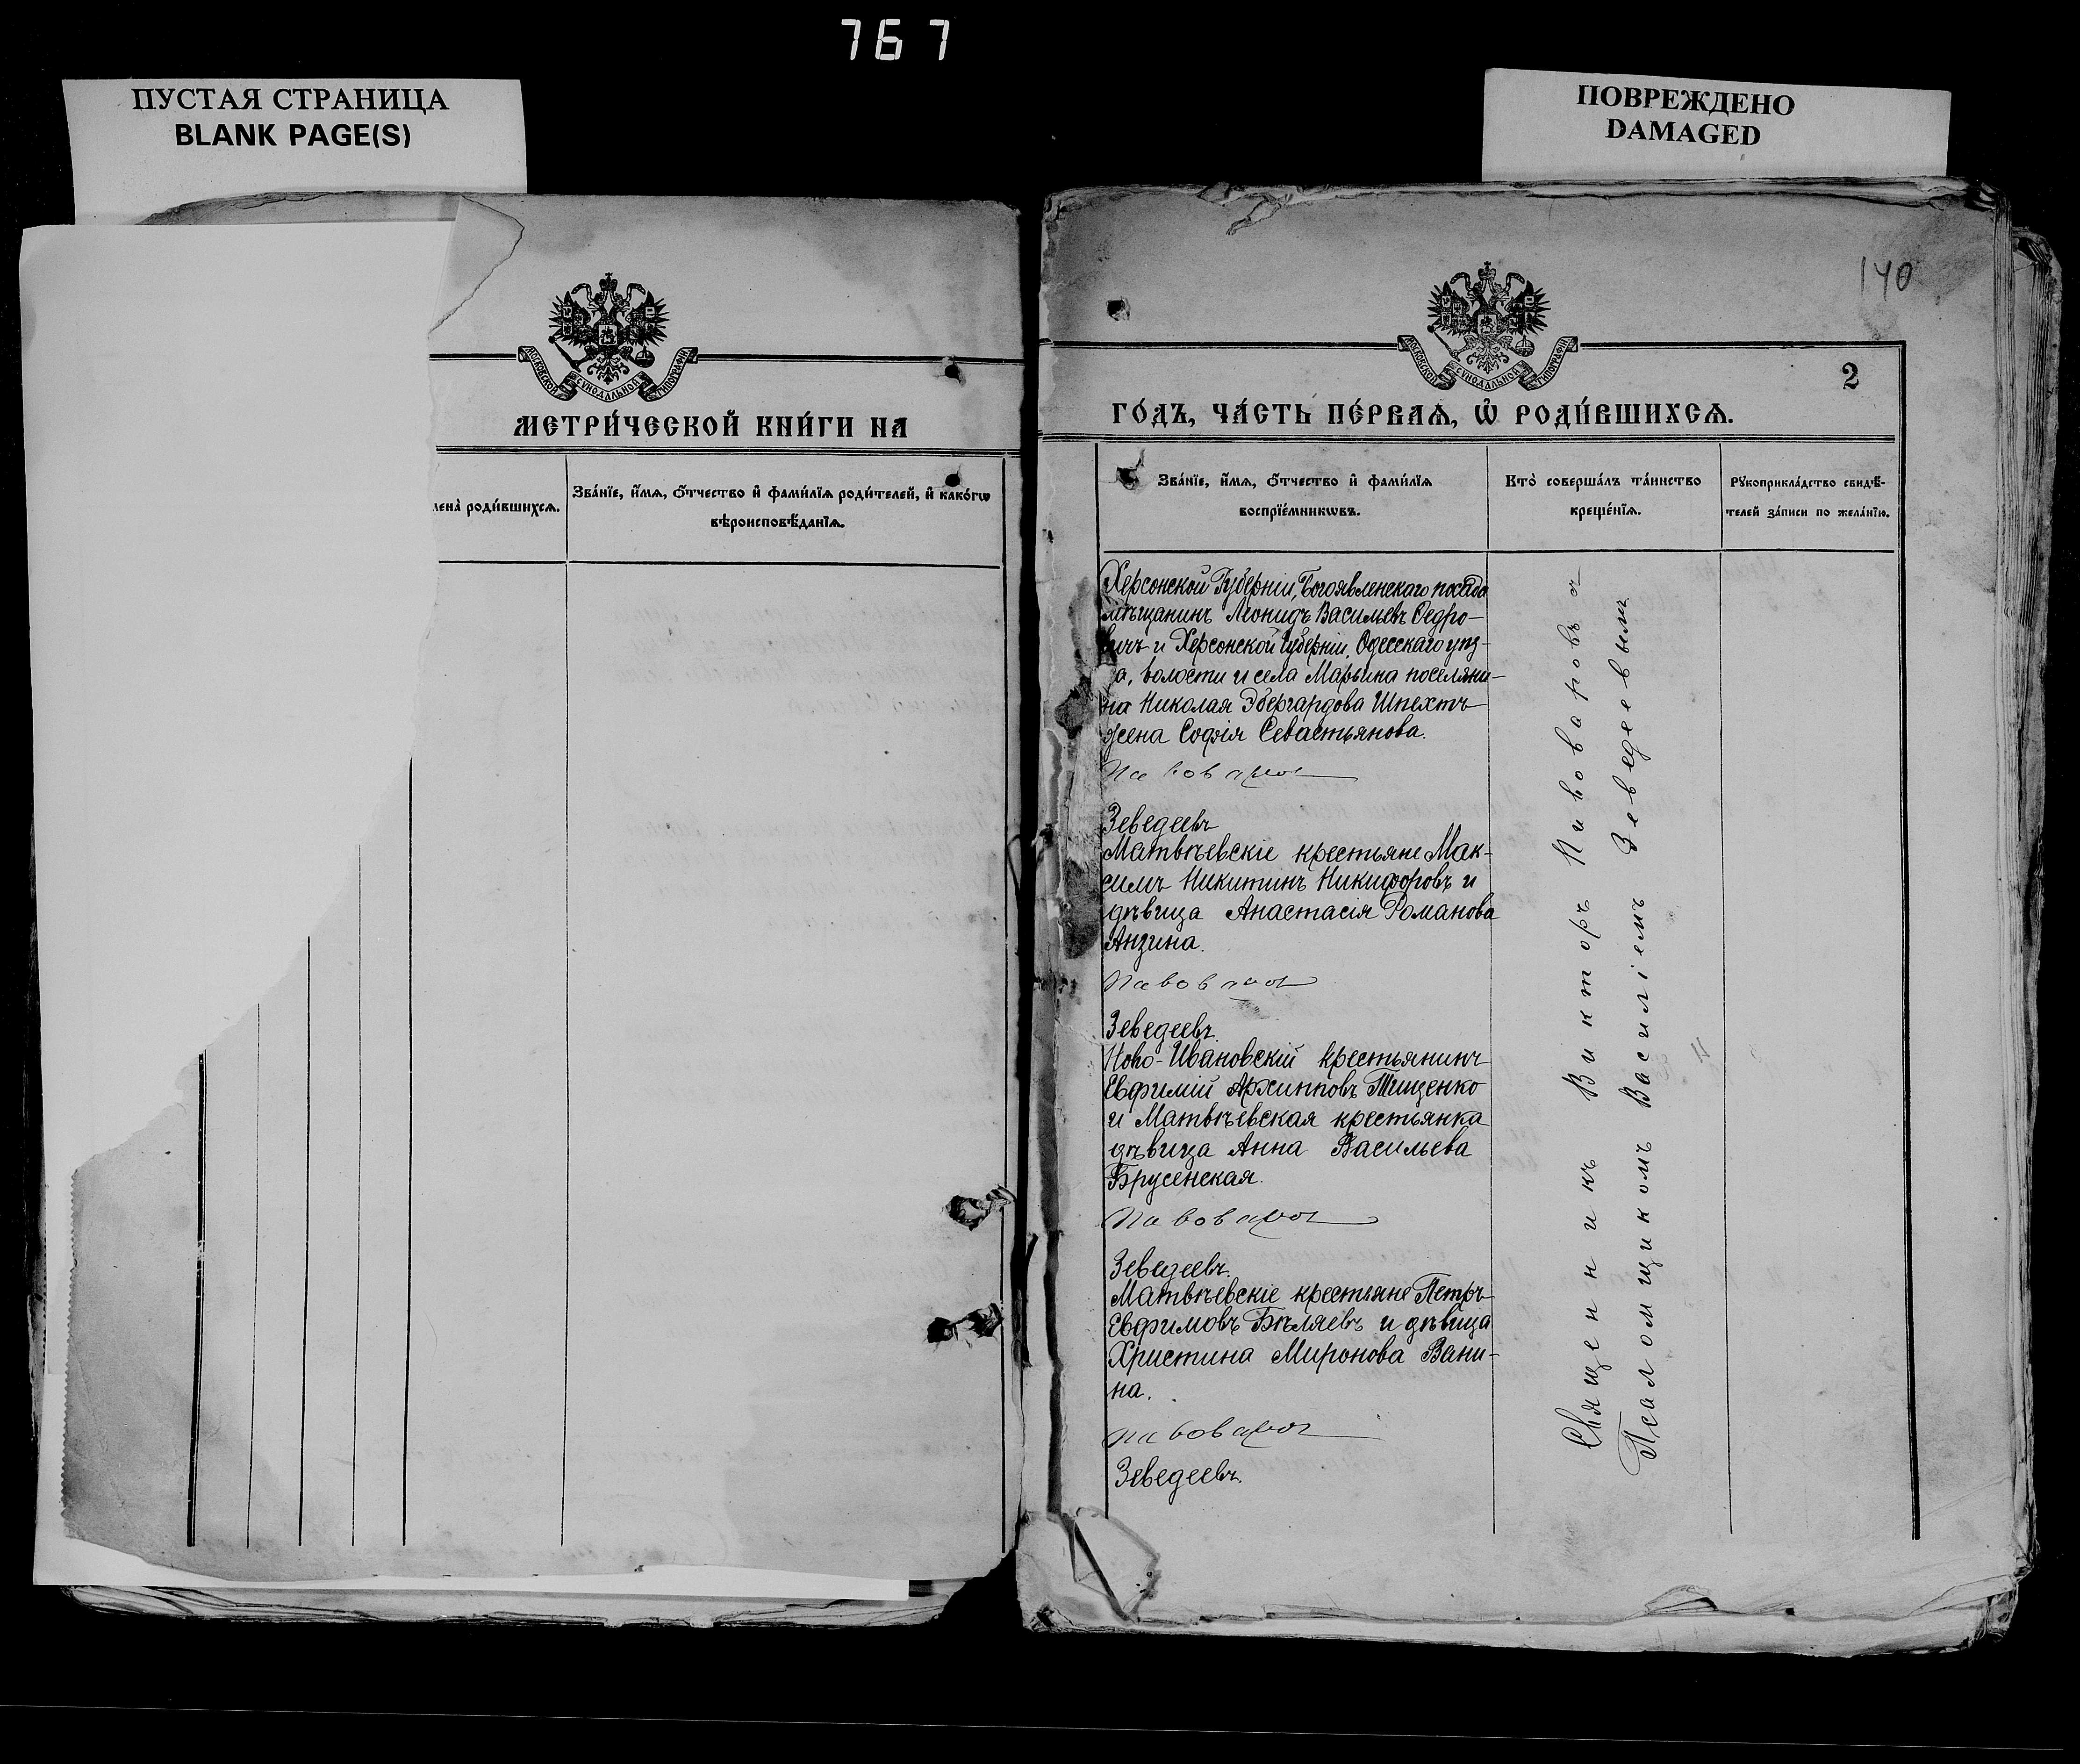 767
ПУСТАЯ СТРАНИЦА
BLANK PAGE(S)
ПОВРЕЖДЕНО
DAMAGED
МОСКОВСКОЙ СУНОДАЛЬНОЙ ТИПОГРАФІИ
МЕТРИ́ЧЕСКОЙ КНИ́ГИ НА
роди́вшихсѧ.
Зва́нїе, и҆́мѧ, ѻ҆́тчество и҆ фами́лїѧ роди́телей, и҆ како́гѡ
вѣроисповѣ́данїѧ.
140
МОСКОВСКОЙ СУНОДАЛЬНОЙ ТИПОГРАФІИ
2
ГО́ДЪ, ЧА́СТЬ ПЕ́РВАѦ, Ѡ҆ РОДИ́ВШИХСѦ.
Зва́нїе, и҆́мѧ, ѻ҆́тчество и҆ фами́лїѧ
воспрїе́мникѡвъ.
Кто̀ соверша́лъ та́инство
креще́нїѧ.
Рꙋкоприкла́дство свидѣ́-
телей за́писи по жела́нїю.
Херсонской Губерніи, Богоявленскаго посада
мѣщанинъ Леонидъ Васильевъ Федро-
вичъ и Херсонской губерніи, Одесскаго уѣз-
да, волости и села Марьина поселяни-
на Николая Эбергардова Шпехтъ
жена Софія Севастьянова.
Пивоваровъ
Зеведеевъ
Матвѣевскіе крестьяне Мак-
симъ Никитинъ Никифоровъ и
дѣвица Анастасія Романова
Анзина.
Пивоваровъ
Зеведеевъ.
Ново-Ивановскій крестьянинъ
Евфимій Архипповъ Тищенко
и Матвѣевская крестьянка
дѣвица Анна Васильева
Брусенская.
Пивоваровъ
Зеведеевъ.
Матвѣевскіе крестьяне Петръ
Евфимовъ Бѣляевъ и дѣвица
Христина Миронова Вани-
на.
Пивоваровъ
Зеведеевъ.
Священникъ Викторъ Пивоваровъ с
Псаломщикомъ Василіемъ Зеведеевымъ